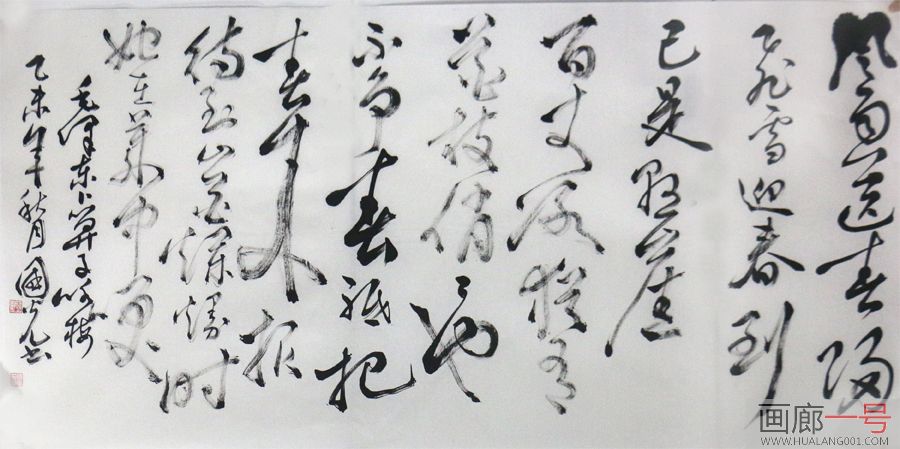 風雨送春归
飞雪迎春到
已是悬崖
百丈冰猶有
花枝俏〻也
不争春祗把
春来报
待到山花爛熳时
她在丛中笑
毛泽东卜算子咏梅
乙未年秋月國光书
画廊一号
WWW.HUALANG001.COM